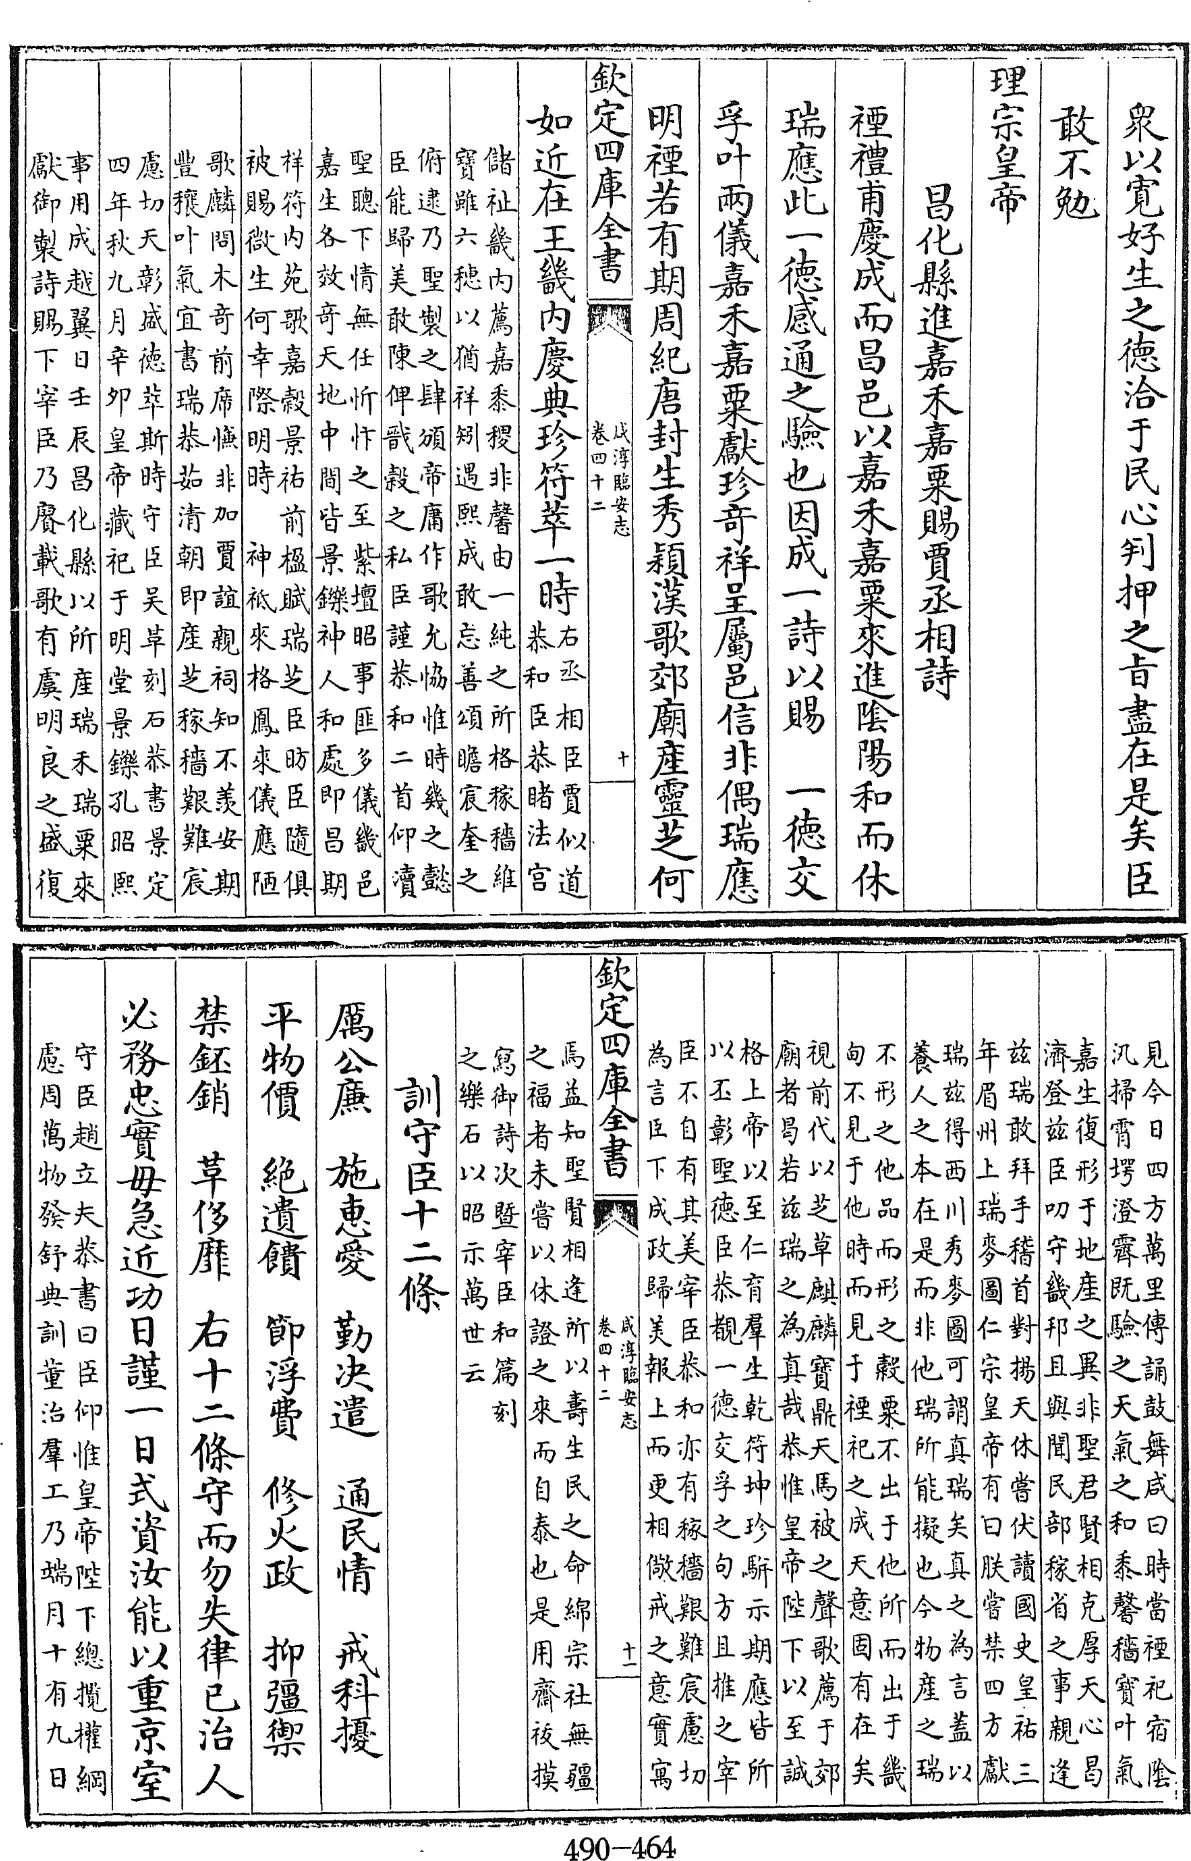 衆以寛好生之德洽于民心判押之㫖盡在是矣臣
敢不勉
理宗皇帝
昌化縣進嘉禾嘉粟賜賈丞相詩
禋禮甫慶成而昌邑以嘉禾嘉粟來進隂陽和而休
瑞應此一德感通之驗也因成一詩以賜　一德交
孚叶兩儀嘉禾嘉粟獻珍奇祥呈屬邑信非偶瑞應
明禋若有期周紀唐封生秀穎漢歌郊廟産靈芝何
欽定四庫全書
咸淳臨安志
卷四十二
十
如近在王畿内慶典珍符萃一時
右丞相臣賈似道
恭和臣恭睹法宫
儲祉畿内薦嘉黍稷非馨由一純之所格稼穡維
寳雖六穗以猶祥矧遇熙成敢忘善頌瞻宸奎之
俯逮乃聖製之肆頒帝庸作歌允恊惟時幾之懿
臣能歸美敢陳俾戩穀之私臣謹恭和二首仰瀆
聖聰下情無任忻忭之至紫壇昭事匪多儀畿邑
嘉生各效奇天地中間皆景鑠神人和處即昌期
祥符内苑歌嘉穀景祐前楹賦瑞芝臣昉臣隨俱
被賜㣲生何幸際明時　神祇來格鳳來儀應陋
歌麟問木奇前席慚非加賈誼親祠知不羨安期
豐穰叶氣宜書瑞恭茹清朝即産芝稼穡艱難宸
慮切天彰盛德萃斯時守臣吳革刻石恭書景定
四年秋九月辛夘皇帝藏祀于明堂景鑠孔昭熙
事用成越翼日壬辰昌化縣以所産瑞禾瑞粟來
獻御製詩賜下宰臣乃賡載歌有虞明良之盛復
見今日四方萬里傳誦鼓舞咸曰時當禋祀宿隂
汎掃霄堮澄霽既驗之天氣之和黍馨穡寳叶氣
嘉生復形于地産之異非聖君賢相克厚天心昌
濟登兹臣叨守畿邦且與聞民部稼省之事親逢
兹瑞敢拜手稽首對揚天休嘗伏讀國史皇祐三
年眉州上瑞麥圖仁宗皇帝有曰朕嘗禁四方獻
瑞兹得西川秀麥圖可謂真瑞矣真之為言蓋以
養人之本在是而非他瑞所能擬也今物産之瑞
不形之他品而形之穀粟不出于他所而出于畿
甸不見于他時而見于禋祀之成天意固有在矣
視前代以芝草麒麟寶鼎天馬被之聲歌薦于郊
廟者曷若兹瑞之為真哉恭惟皇帝陛下以至誠
格上帝以至仁育羣生乾符坤珍駢示期應皆所
以丕彰聖德臣恭覩一德交孚之句方且推之宰
臣不自有其美宰臣恭和亦有稼穡艱難宸慮切
為言臣下成政歸美報上而更相儆戒之意實寓
欽定四庫全書
咸淳臨安志
卷四十二
十一
焉益知聖賢相逢所以壽生民之命綿宗社無疆
之福者未嘗以休證之來而自泰也是用齋祓摸
寫御詩次暨宰臣和篇刻
之樂石以昭示萬世云
訓守臣十二條
厲公廉　施惠愛　勤決遣　通民情　戒科擾
平物價　絶遺饋　節浮費　修火政　抑彊禦
禁鉟銷　革侈靡　右十二條守而勿失律已治人
必務忠實毋急近功日謹一日式資汝能以重京室
守臣趙立夫恭書曰臣仰惟皇帝陛下總攬權綱
慮周萬物發舒典訓董治羣工乃端月十有九日
490-464